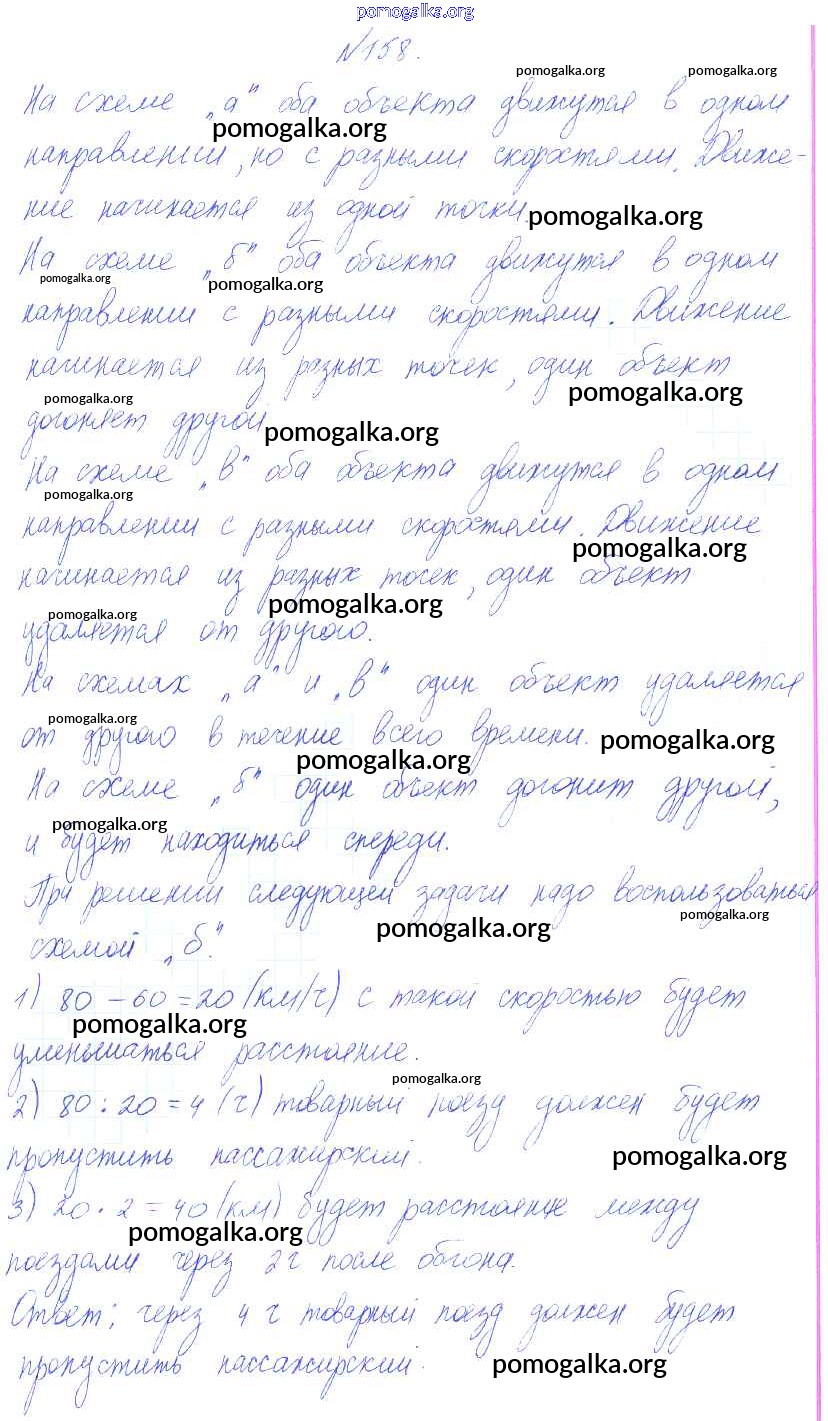 pomogalka.org
№158.
pomogalka.org pomogalka.org
На схеме „а" оба объекта движутся в одном
pomogalka.org
направлении, но с разными скоростями. Движе-
ние начинается из одной точки. pomogalka.org
На схеме „б" оба объекта движутся в одном
pomogalka.org pomogalka.org
направлении с разными скоростями. Движение
начинается из разных точек, один объект
pomogalka.org pomogalka.org
догоняет другой. pomogalka.org
На схеме „в" оба объекта движутся в одном
pomogalka.org
направлении с разными скоростями. Движение
pomogalka.org
начинается из разных точек, один объект
pomogalka.org pomogalka.org
удаляется от другого.
На схемах „а" и „в" один объект удаляется
pomogalka.org
от другого в течение всего времени. pomogalka.org
pomogalka.org
На схеме „б" один объект догонит другой,
pomogalka.org
и будет находиться спереди.
При решении следующей задачи надо воспользоваться
pomogalka.org pomogalka.org
схемой „б".
1) 80 – 60 = 20 (км/ч) с такой скоростью будет
pomogalka.org
уменьшаться расстояние.
pomogalka.org
2) 80 : 20 = 4 (ч) товарный поезд должен будет
пропустить пассажирский. pomogalka.org
3) 20 · 2 = 40 (км) будет расстояние между
pomogalka.org
поездами через 2 ч после обгона.
Ответ: через 4 ч товарный поезд должен будет
пропустить пассажирский. pomogalka.org